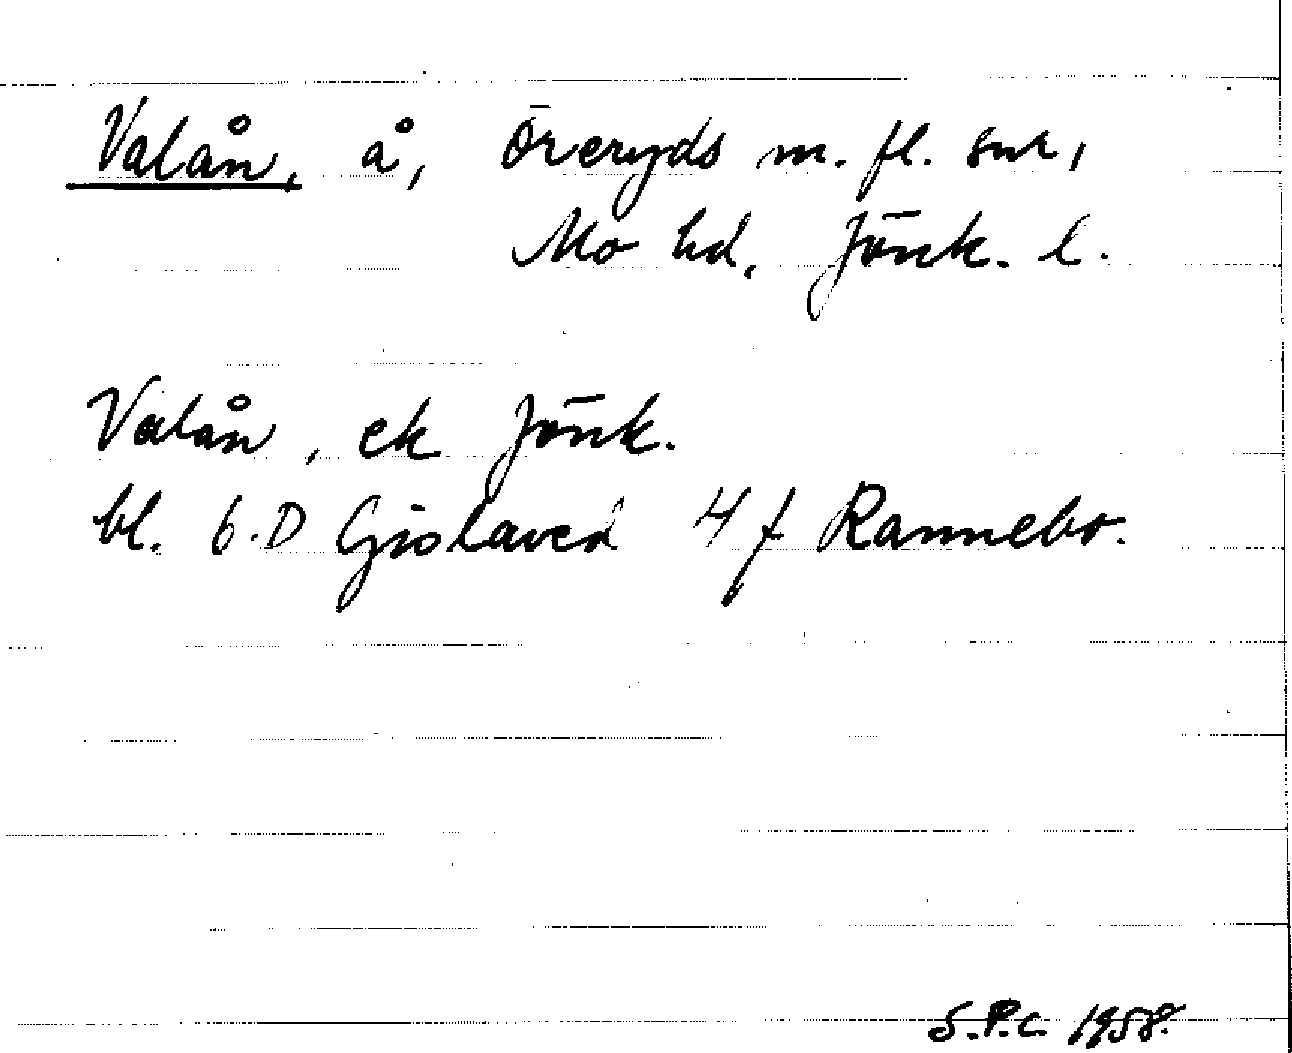 Valån, å, Öreryds m. fl. snr,
Mo hd, Jönk. l.
Valån, ek Jönk.
bl. 6.D Gislaved 4 f Rannebo.
S.P.C. 1958.